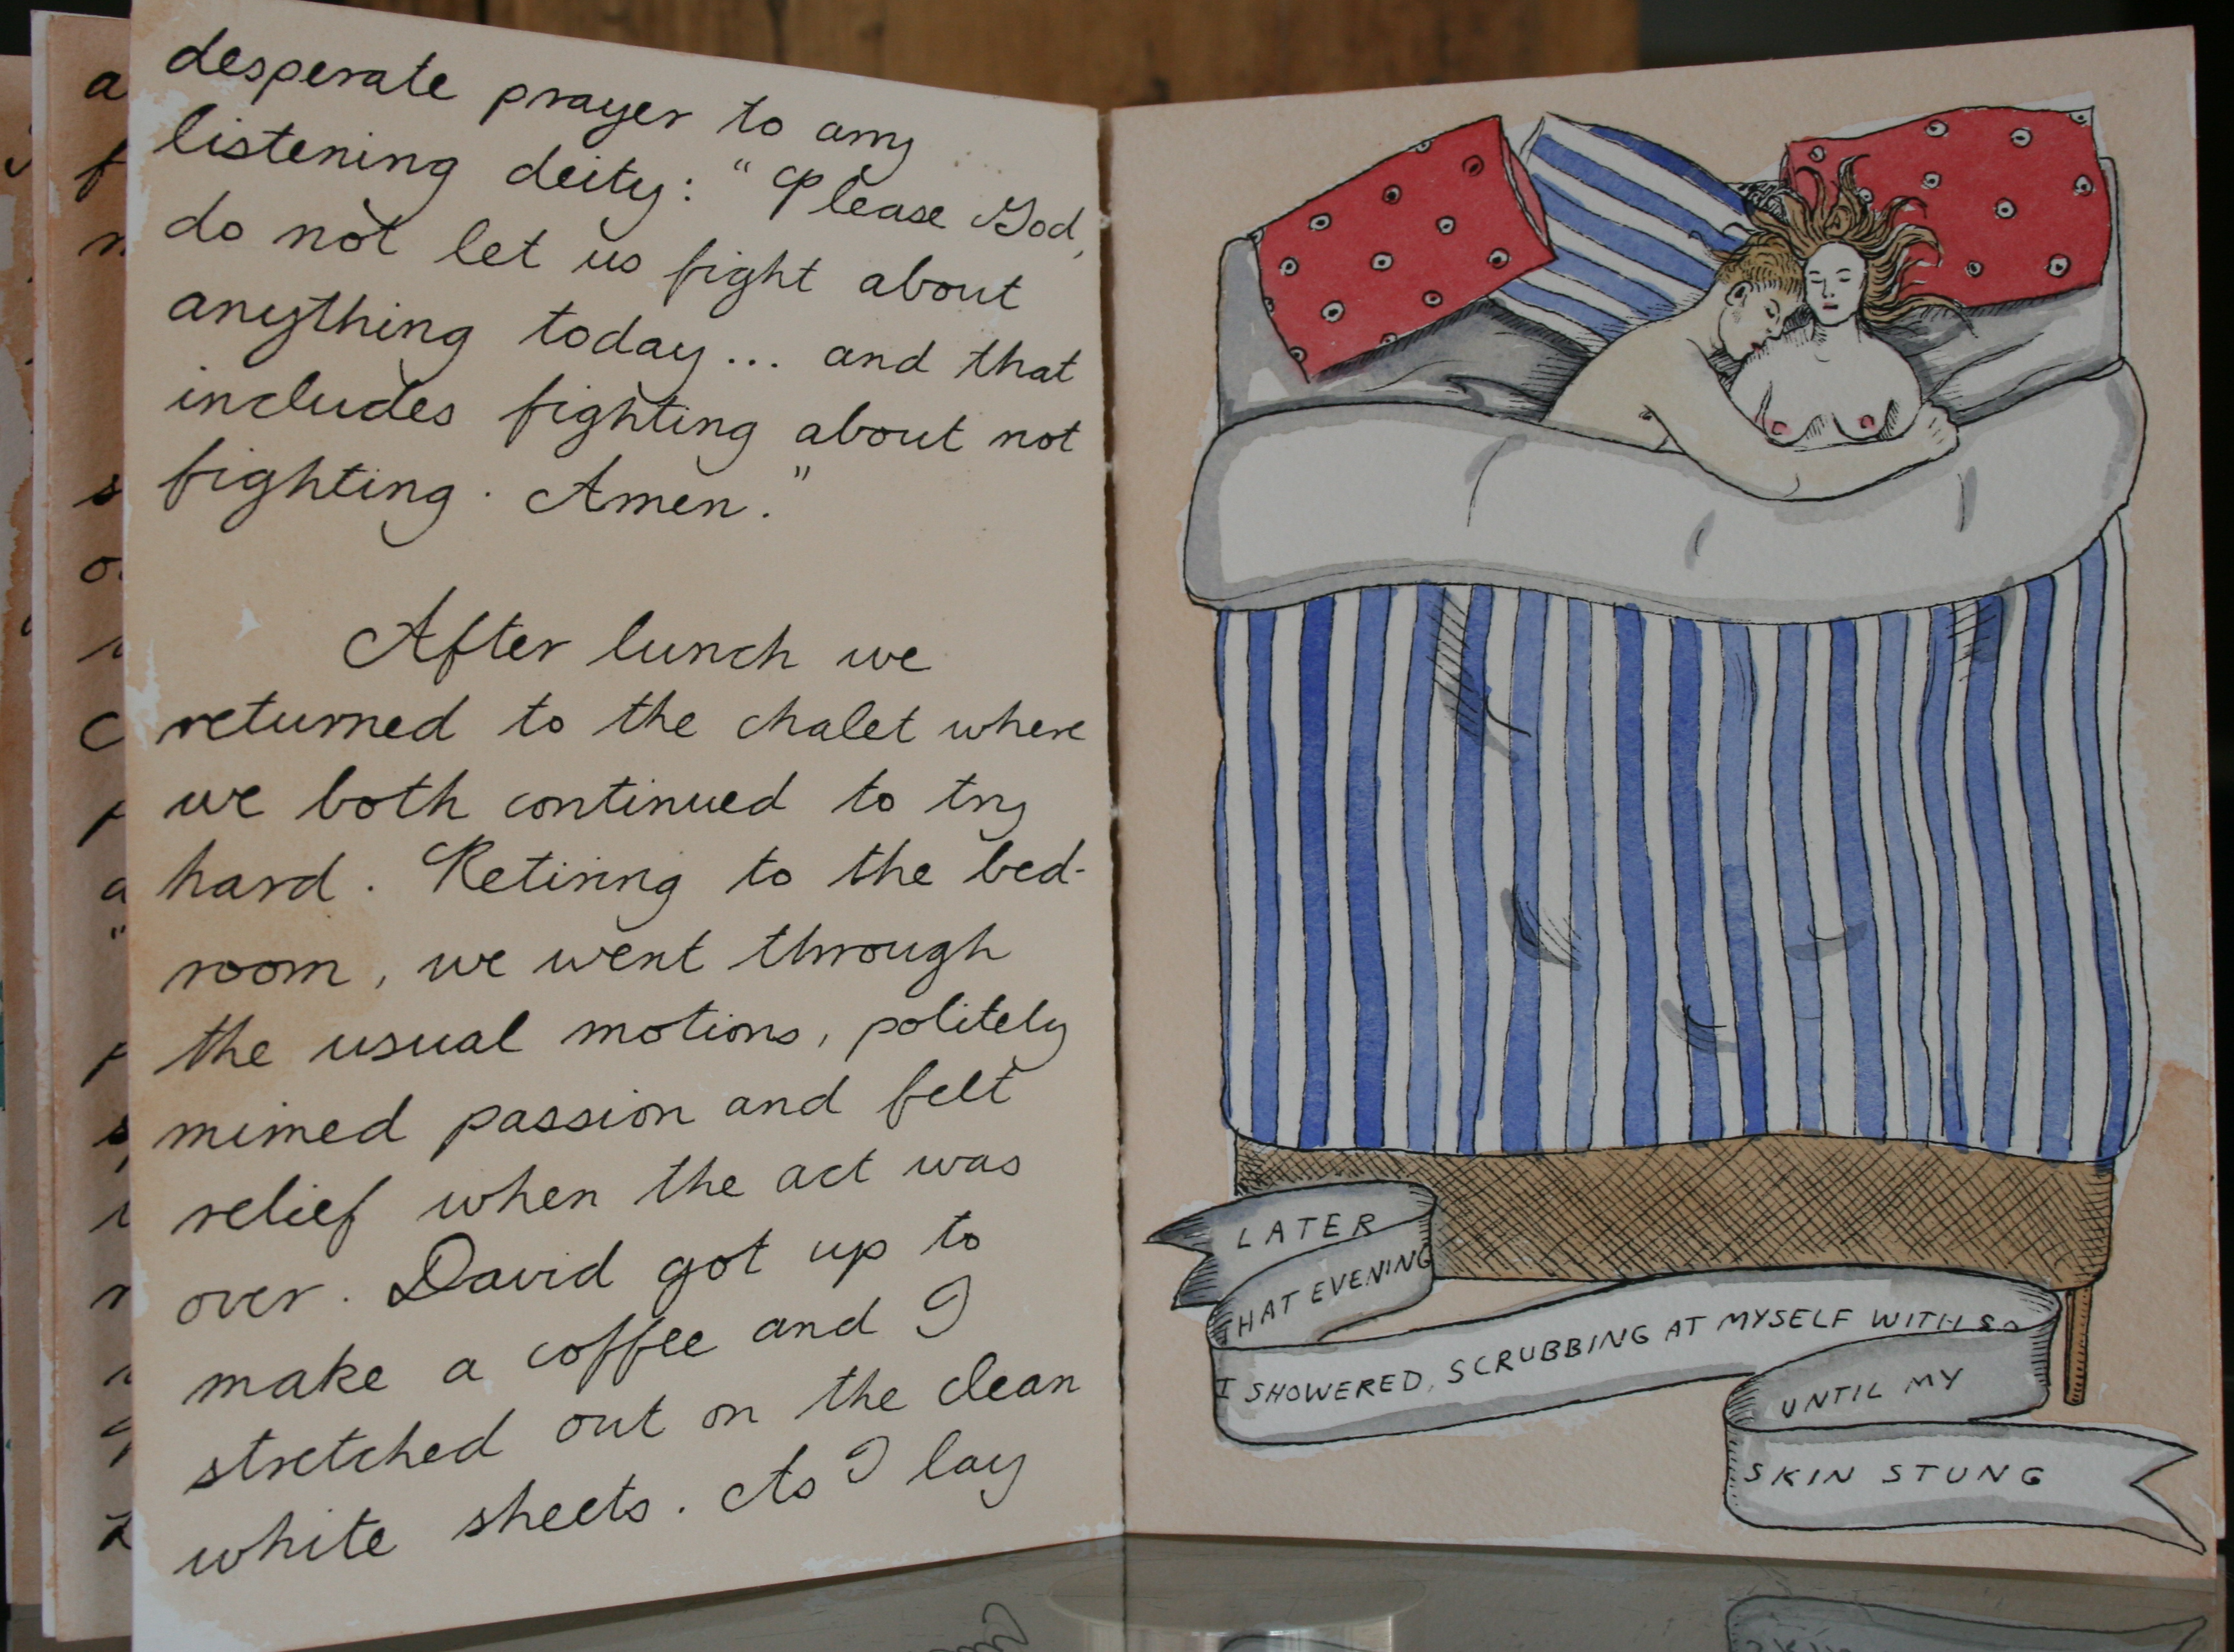 desperate prayer to any
listening deity: "Please God,
do not let us fight about
anything today... and that
includes fighting about not
fighting. Amen."
After lunch we
returned to the chalet where
we both continued to try
hard. Retiring to the bed-
room, we went through
the usual motions, politely
mimed passion and felt
relief when the act was
over. David got up to
make a coffee and I
stretched out on the clean
white sheets. As I lay
LATER
HAT EVENING
I SHOWERED, SCRUBBING AT MYSELF WITH
UNTIL MY
SKIN STUNG